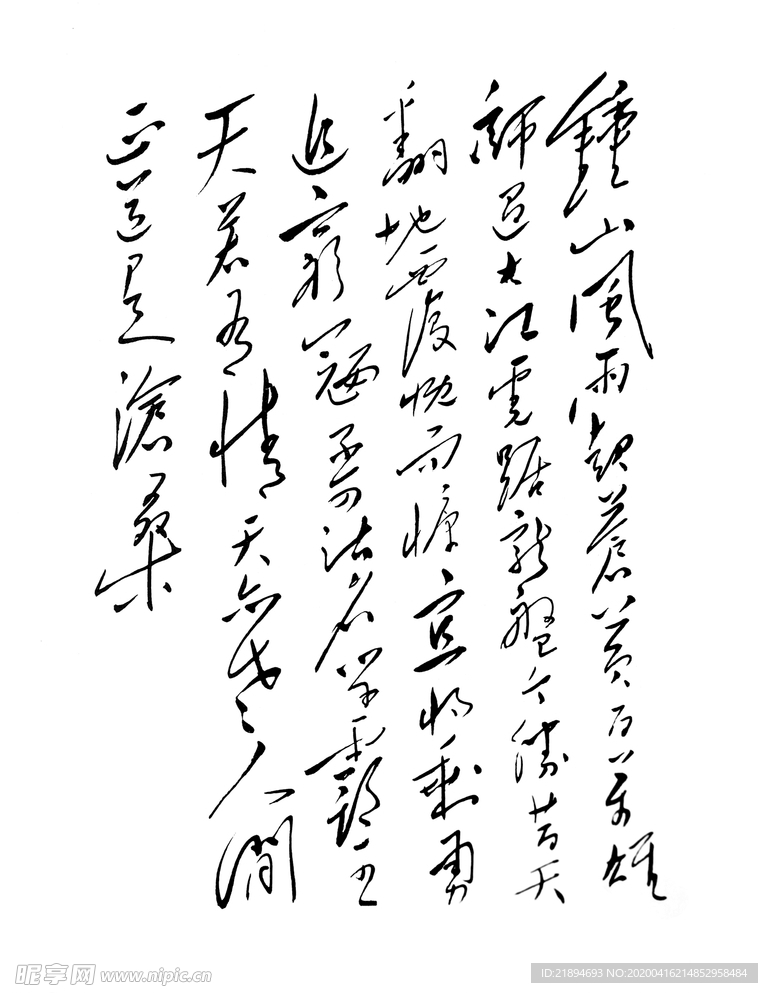 鍾山風雨起蒼黄百萬雄
師過大江虎踞龍盤今勝昔天
翻地覆慨而慷宜將剩勇
追窮寇不可沽名學霸王
天若有情天亦老人間
正道是滄桑
昵享网 www.nipic.cn
ID:21894693 NO:20200416214852958484